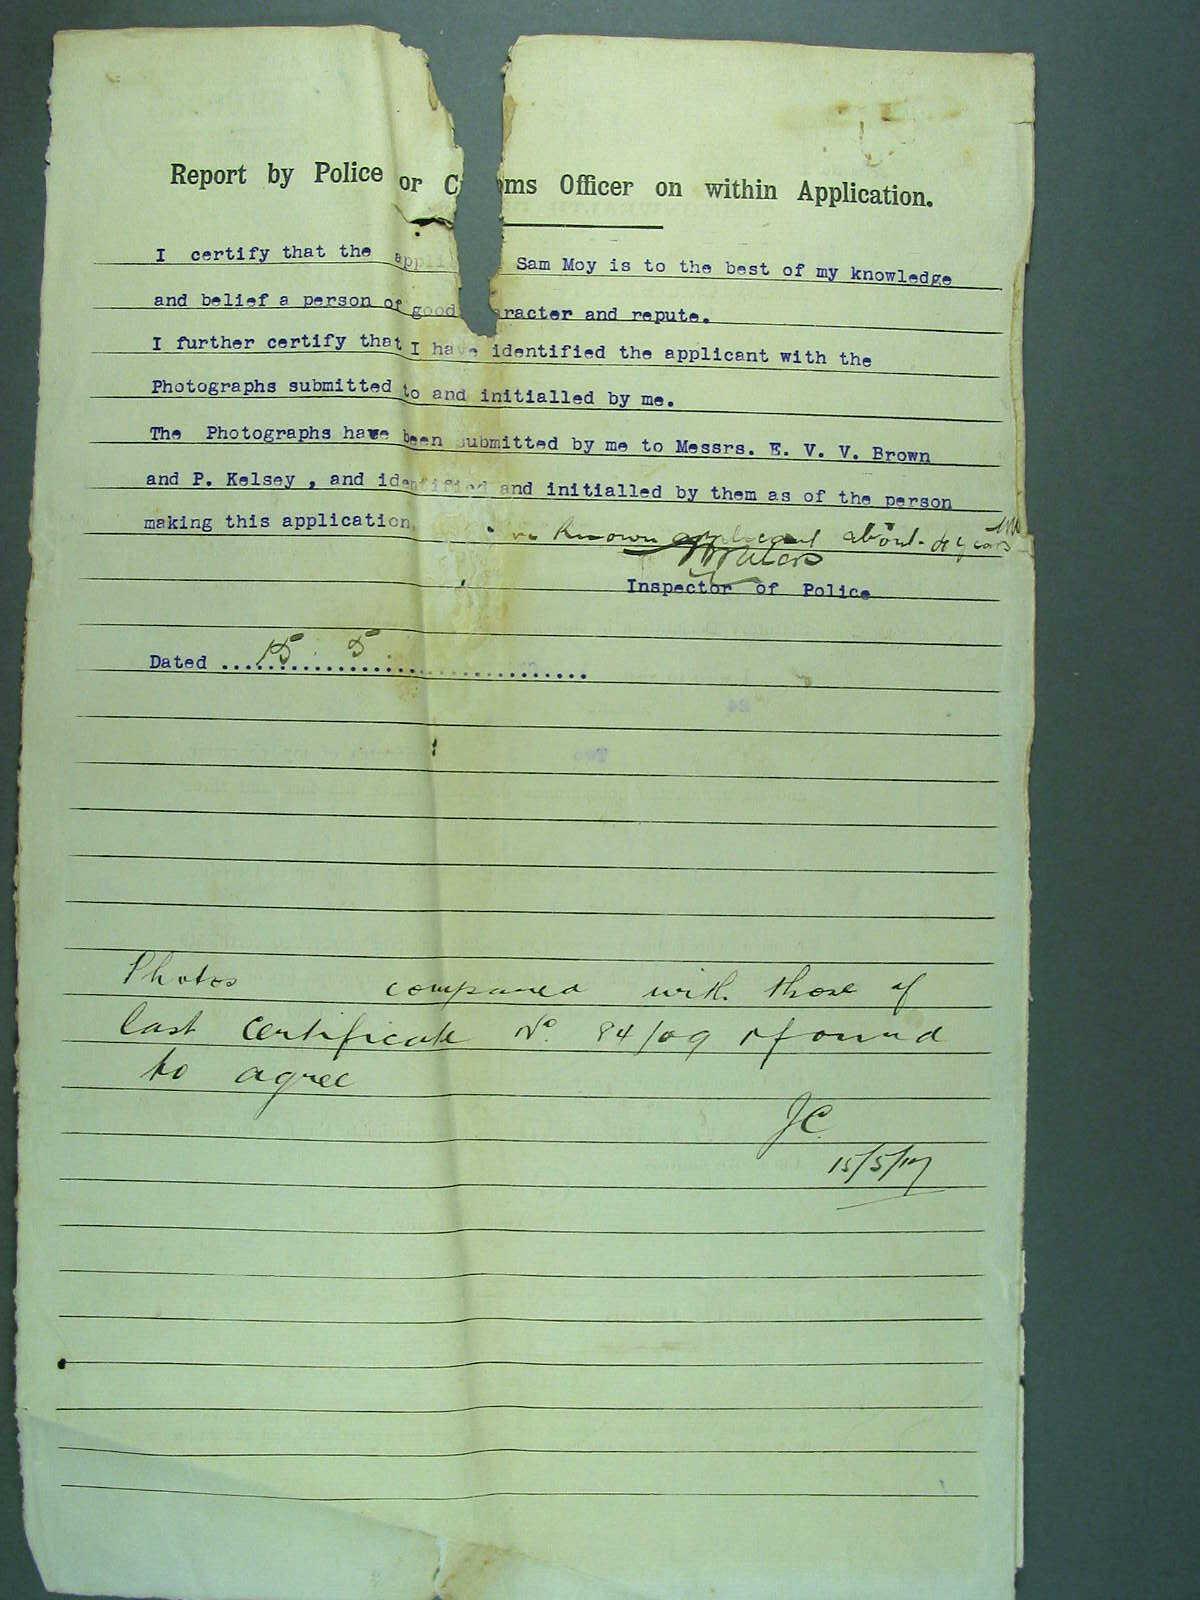 Report by Police or C oms Officer on within Application.
I certify that the appli Sam Moy is to the best of my knowledge
and belief a person of good racter and repute.
I further certify that I have identified the applicant with the
Photographs submitted to and initialled by me.
The Photographs have been submitted by me to Messrs. E. V. V. Brown
and P. Kelsey , and identified and initialled by them as of the person
making this application
Known applicant about years
Inspector of Police
Dated 15 5
24
Two
Photos compared with those of
last certificate No. 84/09 & found
to agree
JC
15/5/17